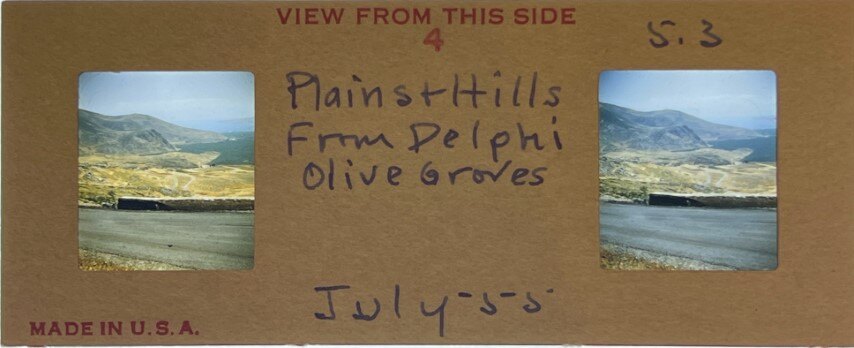 VIEW FROM THIS SIDE
4
5.3
Plains+Hills
From Delphi
Olive Groves
July-55
MADE IN U.S.A.